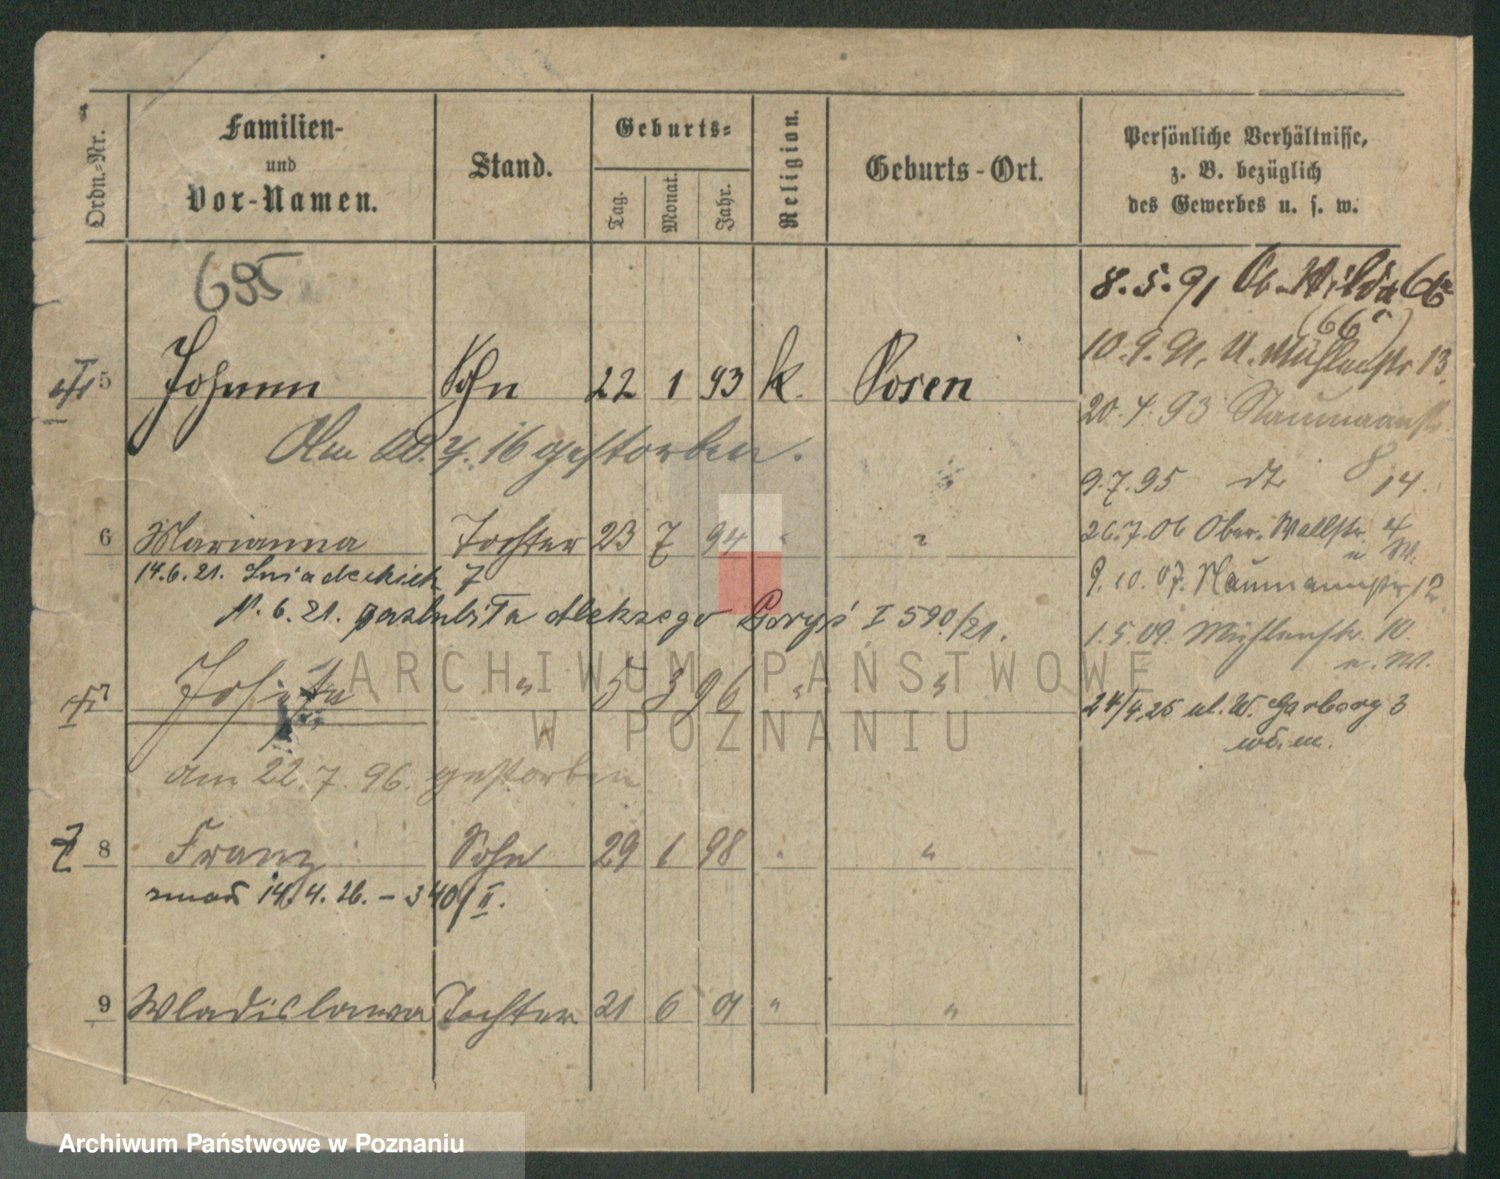 Ordn.-Nr.
Familien-
und
Vor-Namen.
Stand.
Geburts-
Tag.
Monat.
Jahr.
Religion.
Geburts-Ort.
Persönliche Verhältnisse,
z. B. bezüglich
des Gewerbes u. s. w.
695
5 Johann Sohn 22 1 93 k. Posen
gestorben.
6 Marianna Tochter 23 7 94 " "
14.6.21. Śniadeckich 7
6.21. poślubiła I 590/21.
7 Josefa " 5 3 96 " "
am 22.7.96. gestorben
8 Franz Sohn 29 1 98 " "
14.4.26. – 340/II.
9 Wladislawa Tochter 21 6 01 " "
8.5.91 Ob. Wilda 66
(66a)
10.9.91, U. Mühlenstr 13.
20.4.93 Naumannstr.
8
9.7.95 dto 14.
26.7.06 Ober. Wallstr. 4
u W.
9.10.07. Naumannstr 12
1.5.09. Mühlenstr. 10.
u. W.
24/4.25 ul. W. Garbary 3
ARCHIWUM PAŃSTWOWE
W POZNANIU
Archiwum Państwowe w Poznaniu